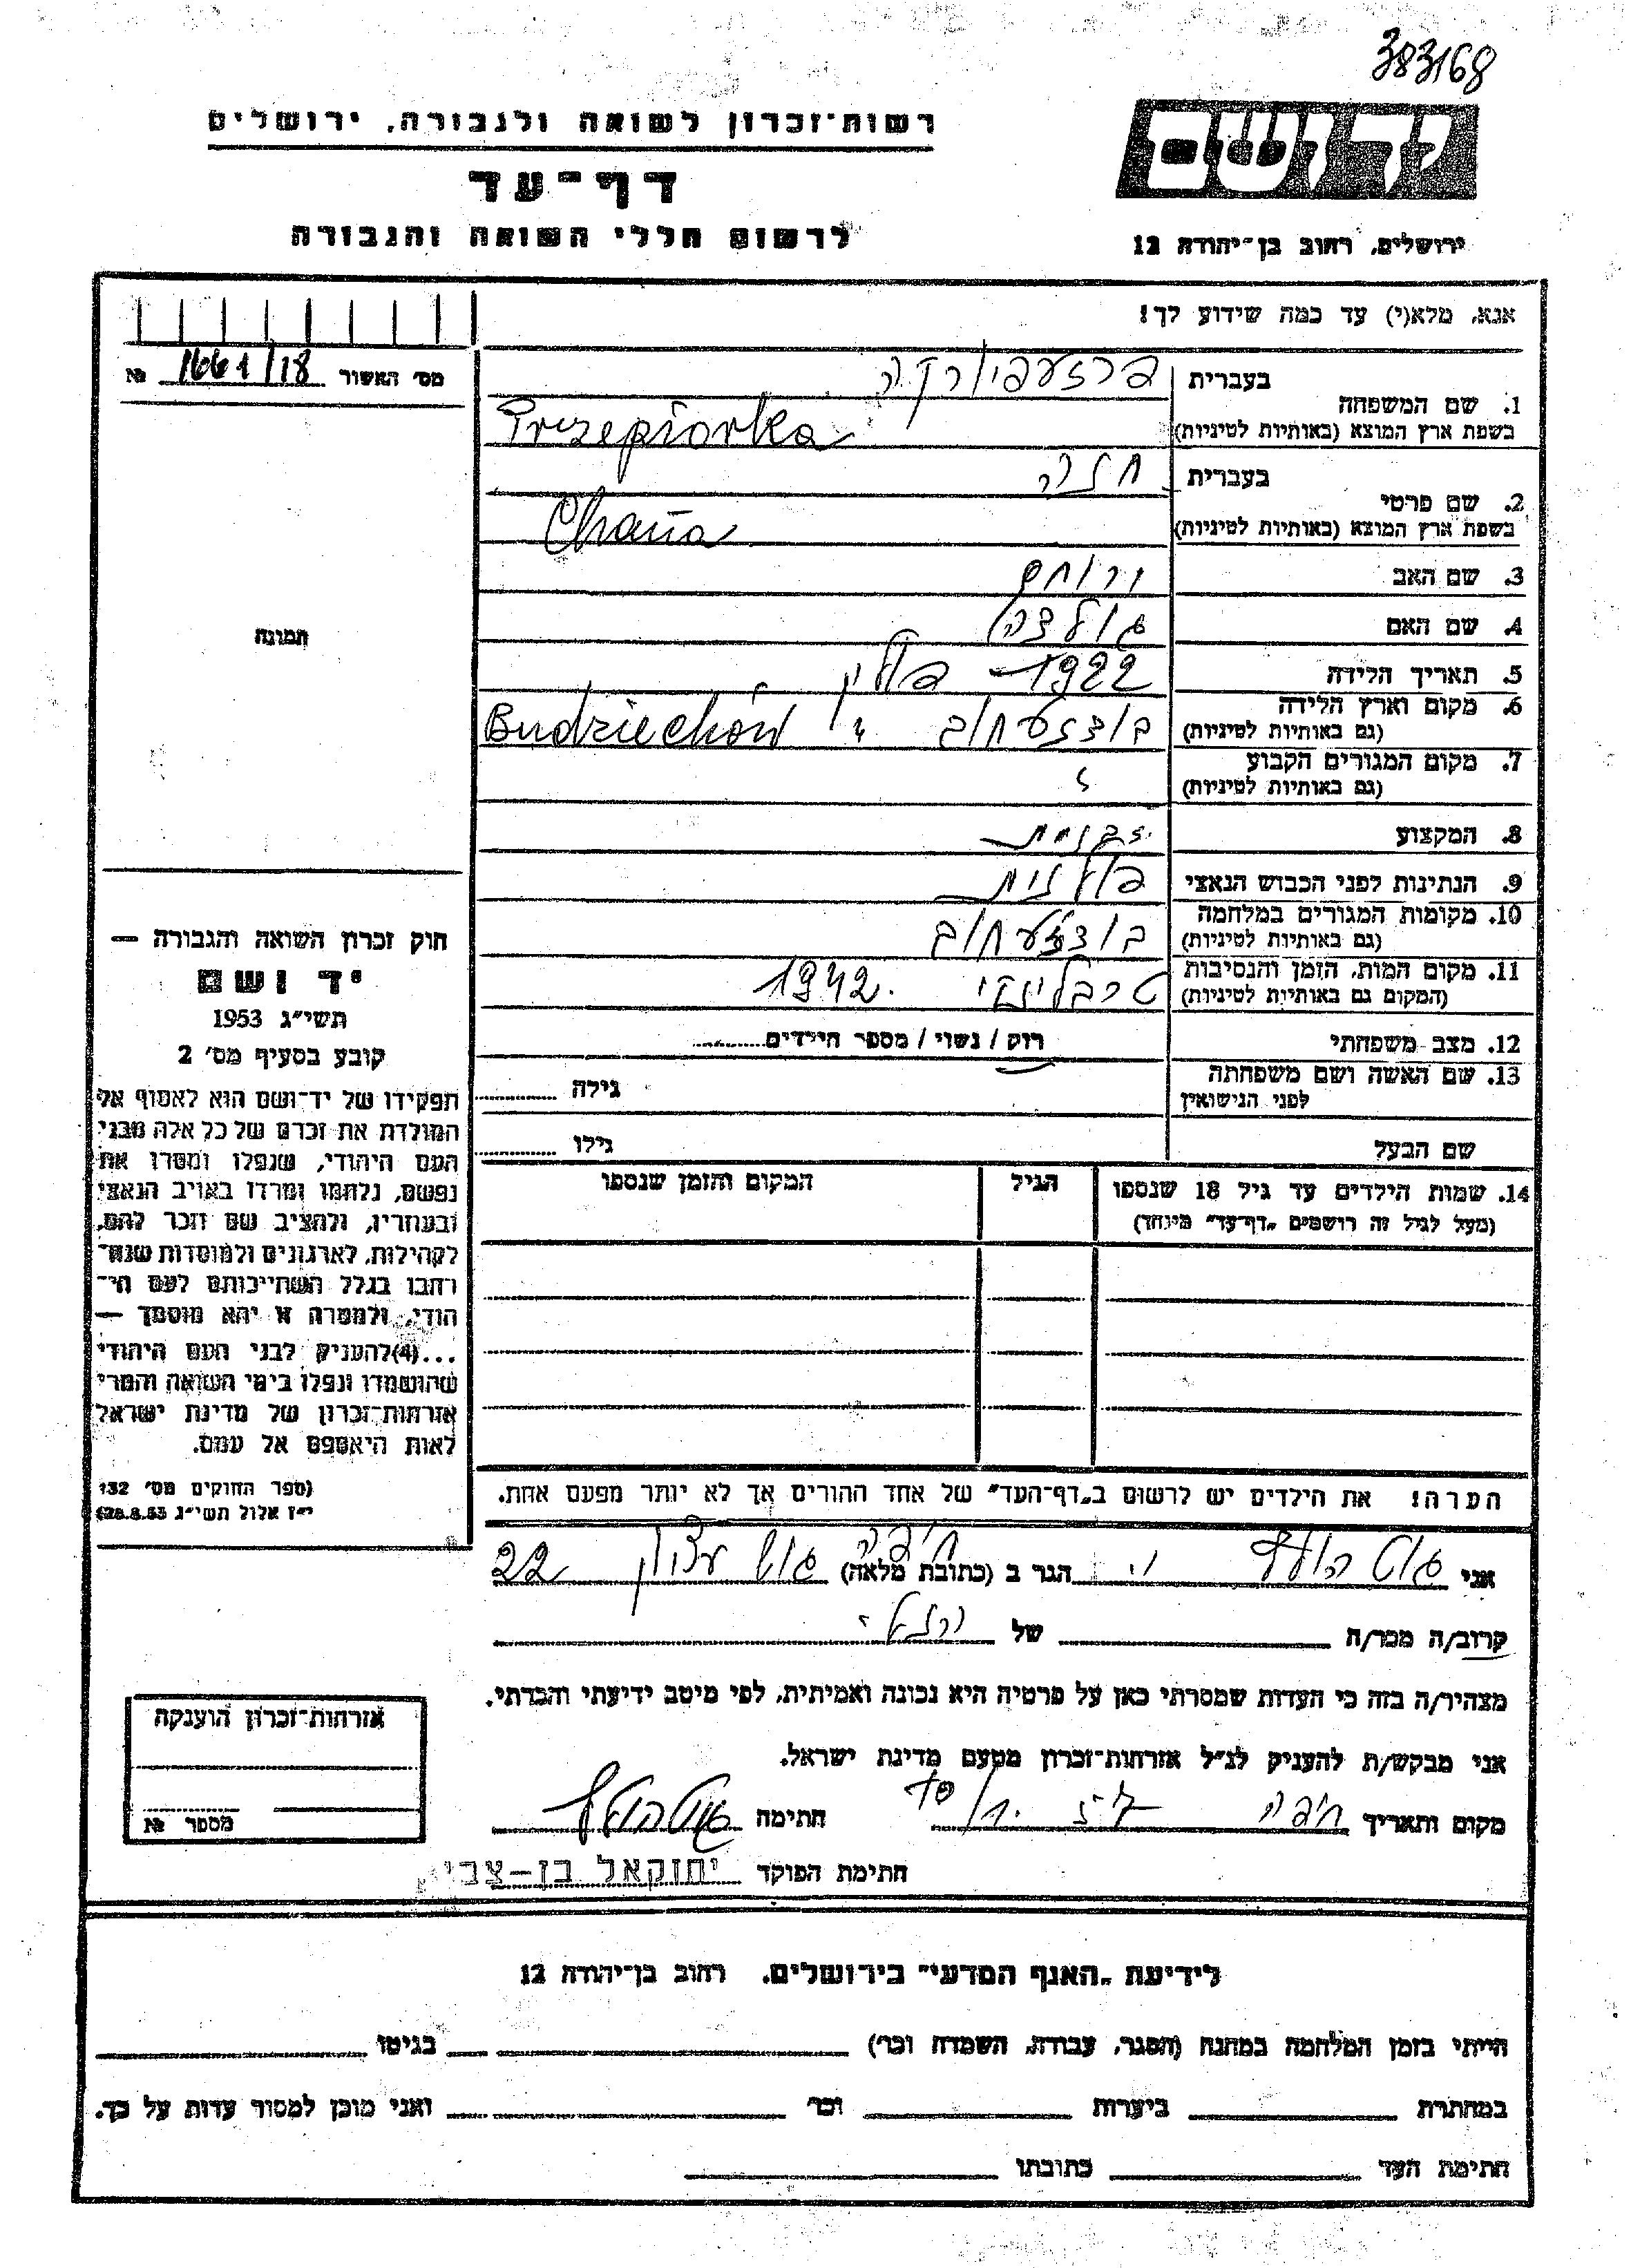 383168
רשות־זכרון לשואה ולגבורה, ירושלים
יד ושם
דף־עד
לרשום חללי השואה והגבורה
ירושלים, רחוב בן־יהודה 12
אנא, מלא(י) עד כמה שידוע לך!
מס׳ האשור 1661/18 №
בעברית
1. שם המשפחה
בשפת ארץ המוצא (באותיות לטיניות) Przepiorka
בעברית חנה
2. שם פרטי
בשפת ארץ המוצא (באותיות לטיניות) Chana
3. שם האב ירוחם
4. שם האם גולדה
תמונה
5. תאריך הלידה 1922 פולין
6. מקום וארץ הלידה Budziechów
(גם באותיות לטיניות)
7. מקום המגורים הקבוע
(גם באותיות לטיניות)
8. המקצוע
9. הנתינות לפני הכבוש הנאצי פולנית
10. מקומות המגורים במלחמה
(גם באותיות לטיניות)
11. מקום המות, הזמן והנסיבות טרבלינקי 1942.
(המקום גם באותיות לטיניות)
12. מצב משפחתי רוק / נשוי / מספר הילדים
13. שם האשה ושם משפחתה גילה
לפני הנישואין
שם הבעל גילו
14. שמות הילדים עד גיל 18 שנספו הגיל המקום והזמן שנספו
(מעל לגיל זה רושמים „דף־עד״ מיוחד)
חוק זכרון השואה והגבורה —
יד ושם
תשי״ג 1953
קובע בסעיף מס׳ 2
תפקידו של יד־ושם הוא לאסוף אל
המולדת את זכרם של כל אלה מבני
העם היהודי, שנפלו ומסרו את
נפשם, נלחמו ומרדו באויב הנאצי
ובעוזריו, ולהציב שם וזכר להם,
לקהילות, לארגונים ולמוסדות שנח־
רבו בגלל השתייכותם לעם הי־
הודי, ולמטרה זו יהא מוסמך —
...(4)להעניק לבני העם היהודי
שהושמדו ונפלו בימי השואה והמרי
אזרחות־זכרון של מדינת ישראל
לאות היאספם אל עמם.
(ספר החוקים מס׳ 132
י״ז אלול תשי״ג 28.8.53)
הערה! את הילדים יש לרשום ב„דף־העד״ של אחד ההורים אך לא יותר מפעם אחת.
אני הגר ב (כתובת מלאה) חיפה 22
קרוב/ה מכר/ה של
מצהיר/ה בזה כי העדות שמסרתי כאן על פרטיה היא נכונה ואמיתית, לפי מיטב ידיעתי והכרתי.
אני מבקש/ת להעניק לנ״ל אזרחות־זכרון מטעם מדינת ישראל.
מקום ותאריך חיפה חתימה
חתימת הפוקד יחזקאל בן־צבי
אזרחות־זכרון הוענקה
מספר №
לידיעת „האגף המדעי״ בירושלים, רחוב בן־יהודה 12
הייתי בזמן המלחמה במחנה (הסגר, עבודה, השמדה וכו׳) בגיטו
במחתרת ביערות וכו׳ ואני מוכן למסור עדות על כך.
חתימת העד כתובתו